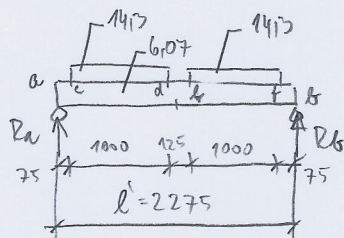 14,3 14,3
6,07
a c d b f b
Ra Rb
75 1000 125 1000 75
l' = 2275